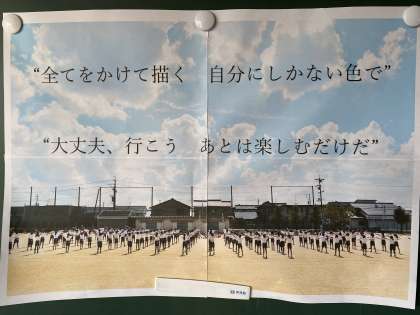 “全てをかけて描く　自分にしかない色で”
“大丈夫、行こう　あとは楽しむだけだ”